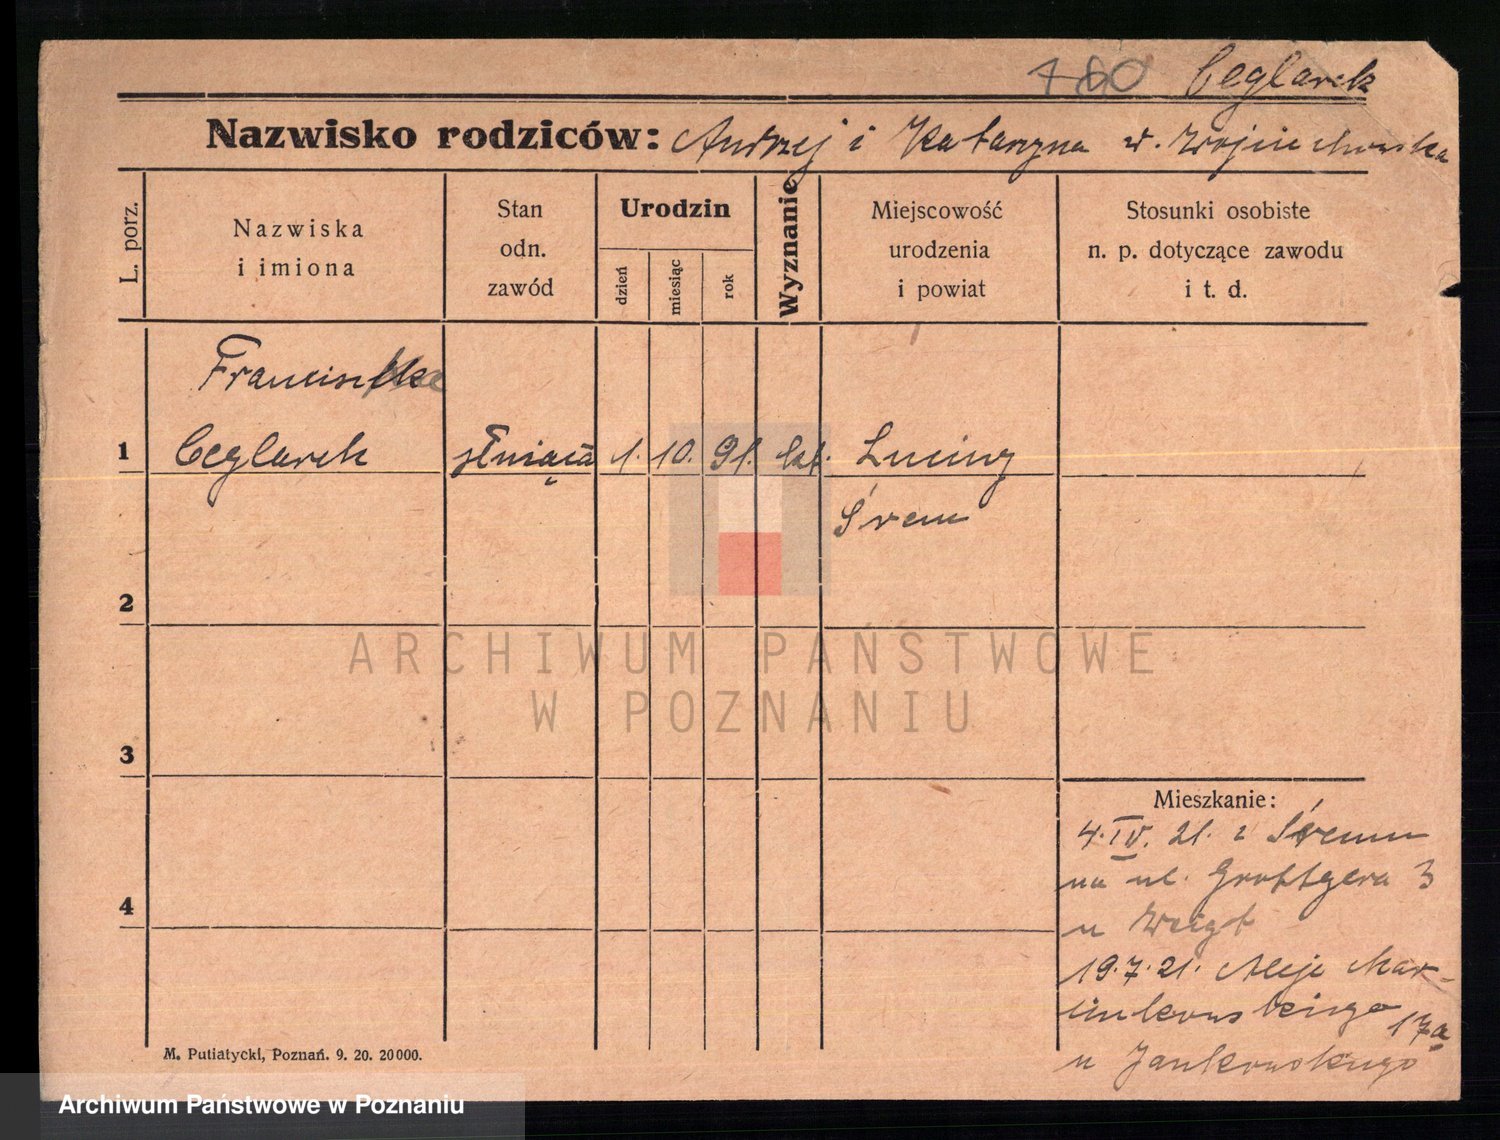 760 Ceglarek
Nazwisko rodziców: Andrzej i Katarzyna z d. Wojciechowska
L. porz.
Nazwiska
i imiona
Stan
odn.
zawód
Urodzin
dzień
miesiąc
rok
Wyznanie
Miejscowość
urodzenia
i powiat
Stosunki osobiste
n. p. dotyczące zawodu
i t. d.
Franciszka
1 Ceglarek służąca 1. 10. 91. kat. Luciny
Śrem
2
3
4
ARCHIWUM PAŃSTWOWE
W POZNANIU
Mieszkanie:
4.IV. 21. z Śremu
na ul. Grottgera 3
u Weigt
19.7.21. Aleje Mar-
cinkowskiego 17a
u Jankowskiego
M. Putiatycki, Poznań. 9. 20. 20000.
Archiwum Państwowe w Poznaniu